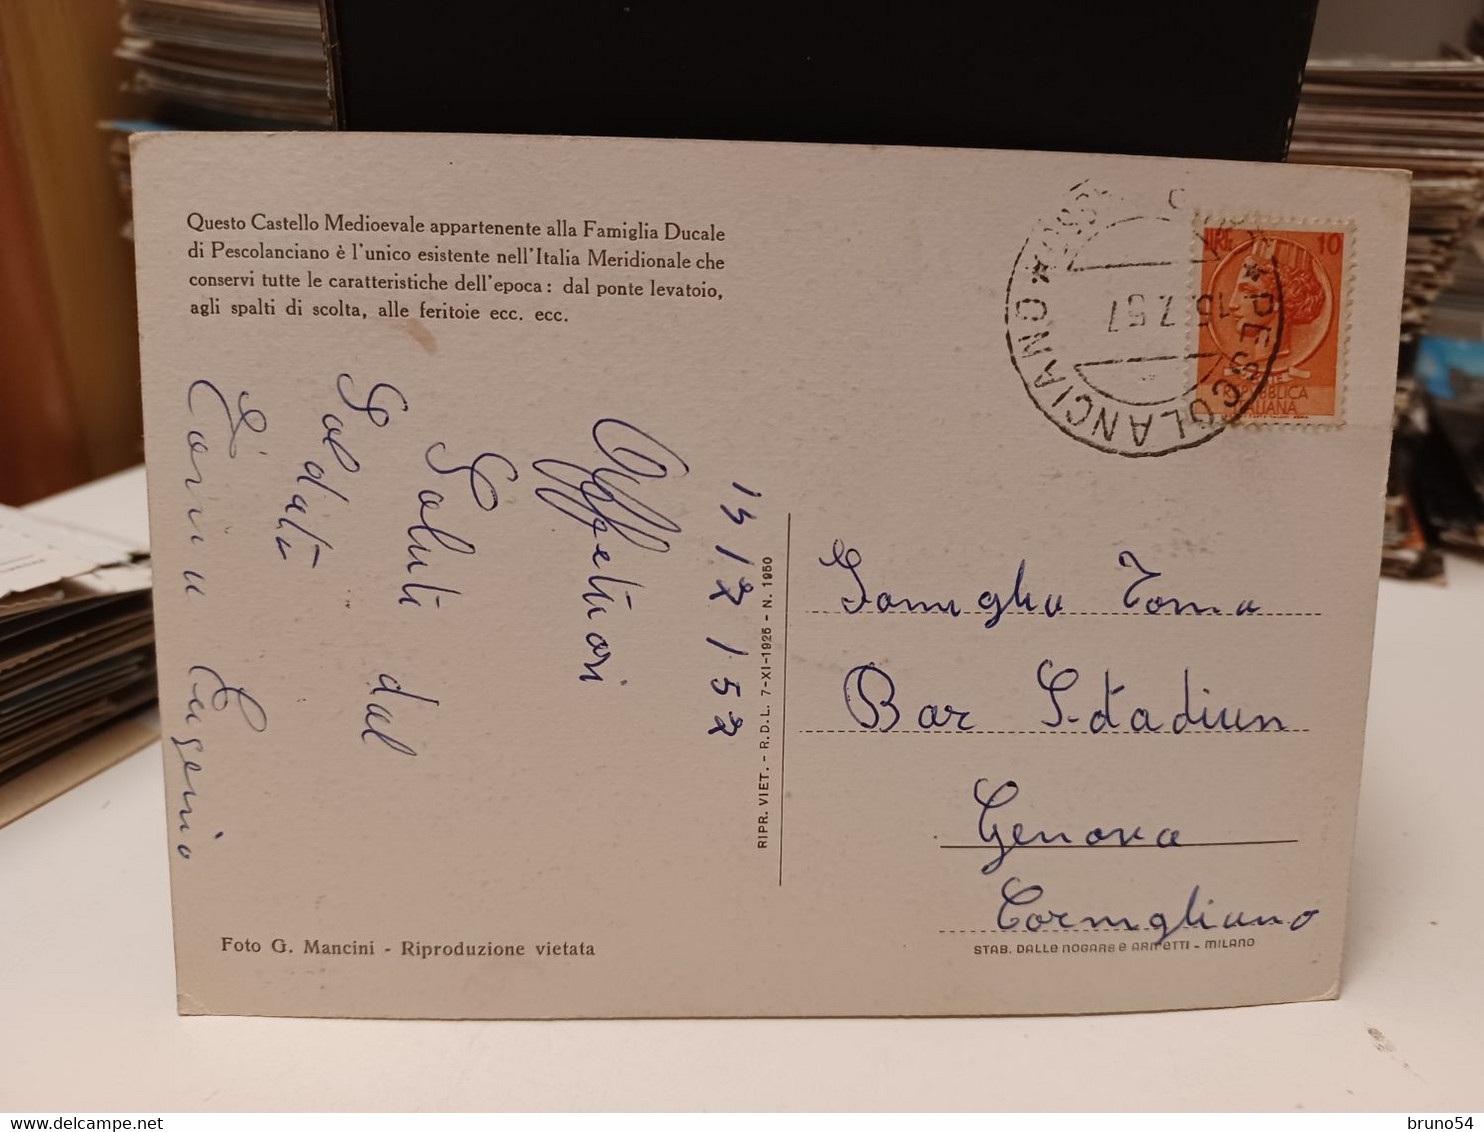 Questo Castello Medioevale appartenente alla Famiglia Ducale
di Pescolanciano è l'unico esistente nell'Italia Meridionale che
conservi tutte le caratteristiche dell'epoca: dal ponte levatoio,
agli spalti di scolta, alle feritoie ecc. ecc.
15/7/57
Affettuosi
Saluti dal
Soldato
Eugenio
Foto G. Mancini - Riproduzione vietata
RIPR. VIET. - R.D.L. 7-XI-1925 - N. 1950
PESCOLANCIANO
15.7.57
LIRE 10
REPUBBLICA
ITALIANA
Famiglia Toma
Bar Stadium
Genova
Cornigliano
STAB. DALLE NOGARE e ARMETTI - MILANO
bruno54
www.delcampe.net